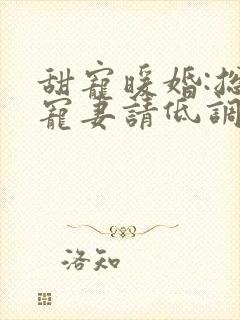 甜寵暖婚:總
寵妻請低調
洛知